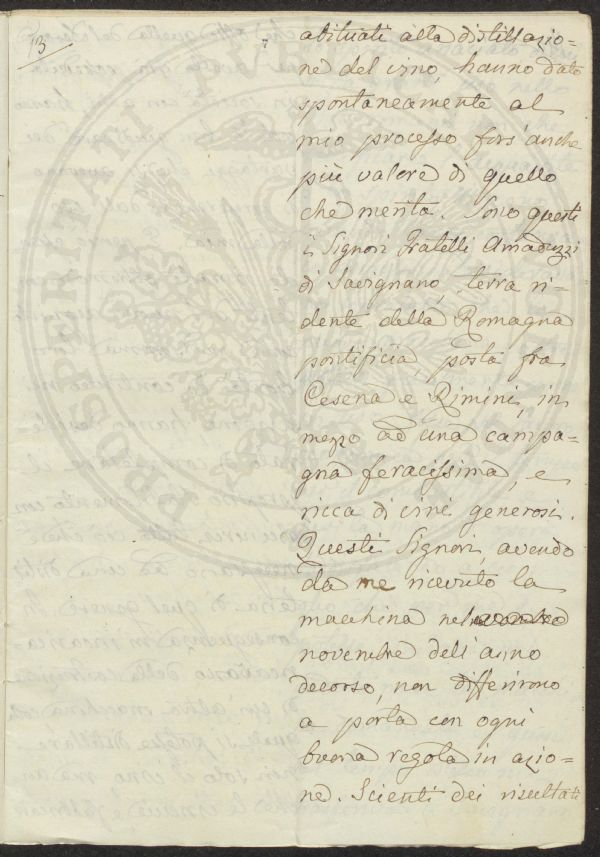 13
7
abituati alla distillazio=
ne del vino, hanno dato
spontaneamente al
mio processo fors'anche
più valore di quello
che merita. Sono questi
i Signori Fratelli Amaduzzi
di Savignano, terra ri-
dente della Romagna
pontificia, posta fra
Cesena e Rimini, in
mezzo ad una campa=
gna feracissima, e
ricca di vini generosi.
Questi Signori, avendo
da me ricevuto la
macchina nel
novembre dell'anno
decorso, non differirono
a porla con ogni
buona regola in azio=
ne. Scienti dei risultati
PROSPERITATI